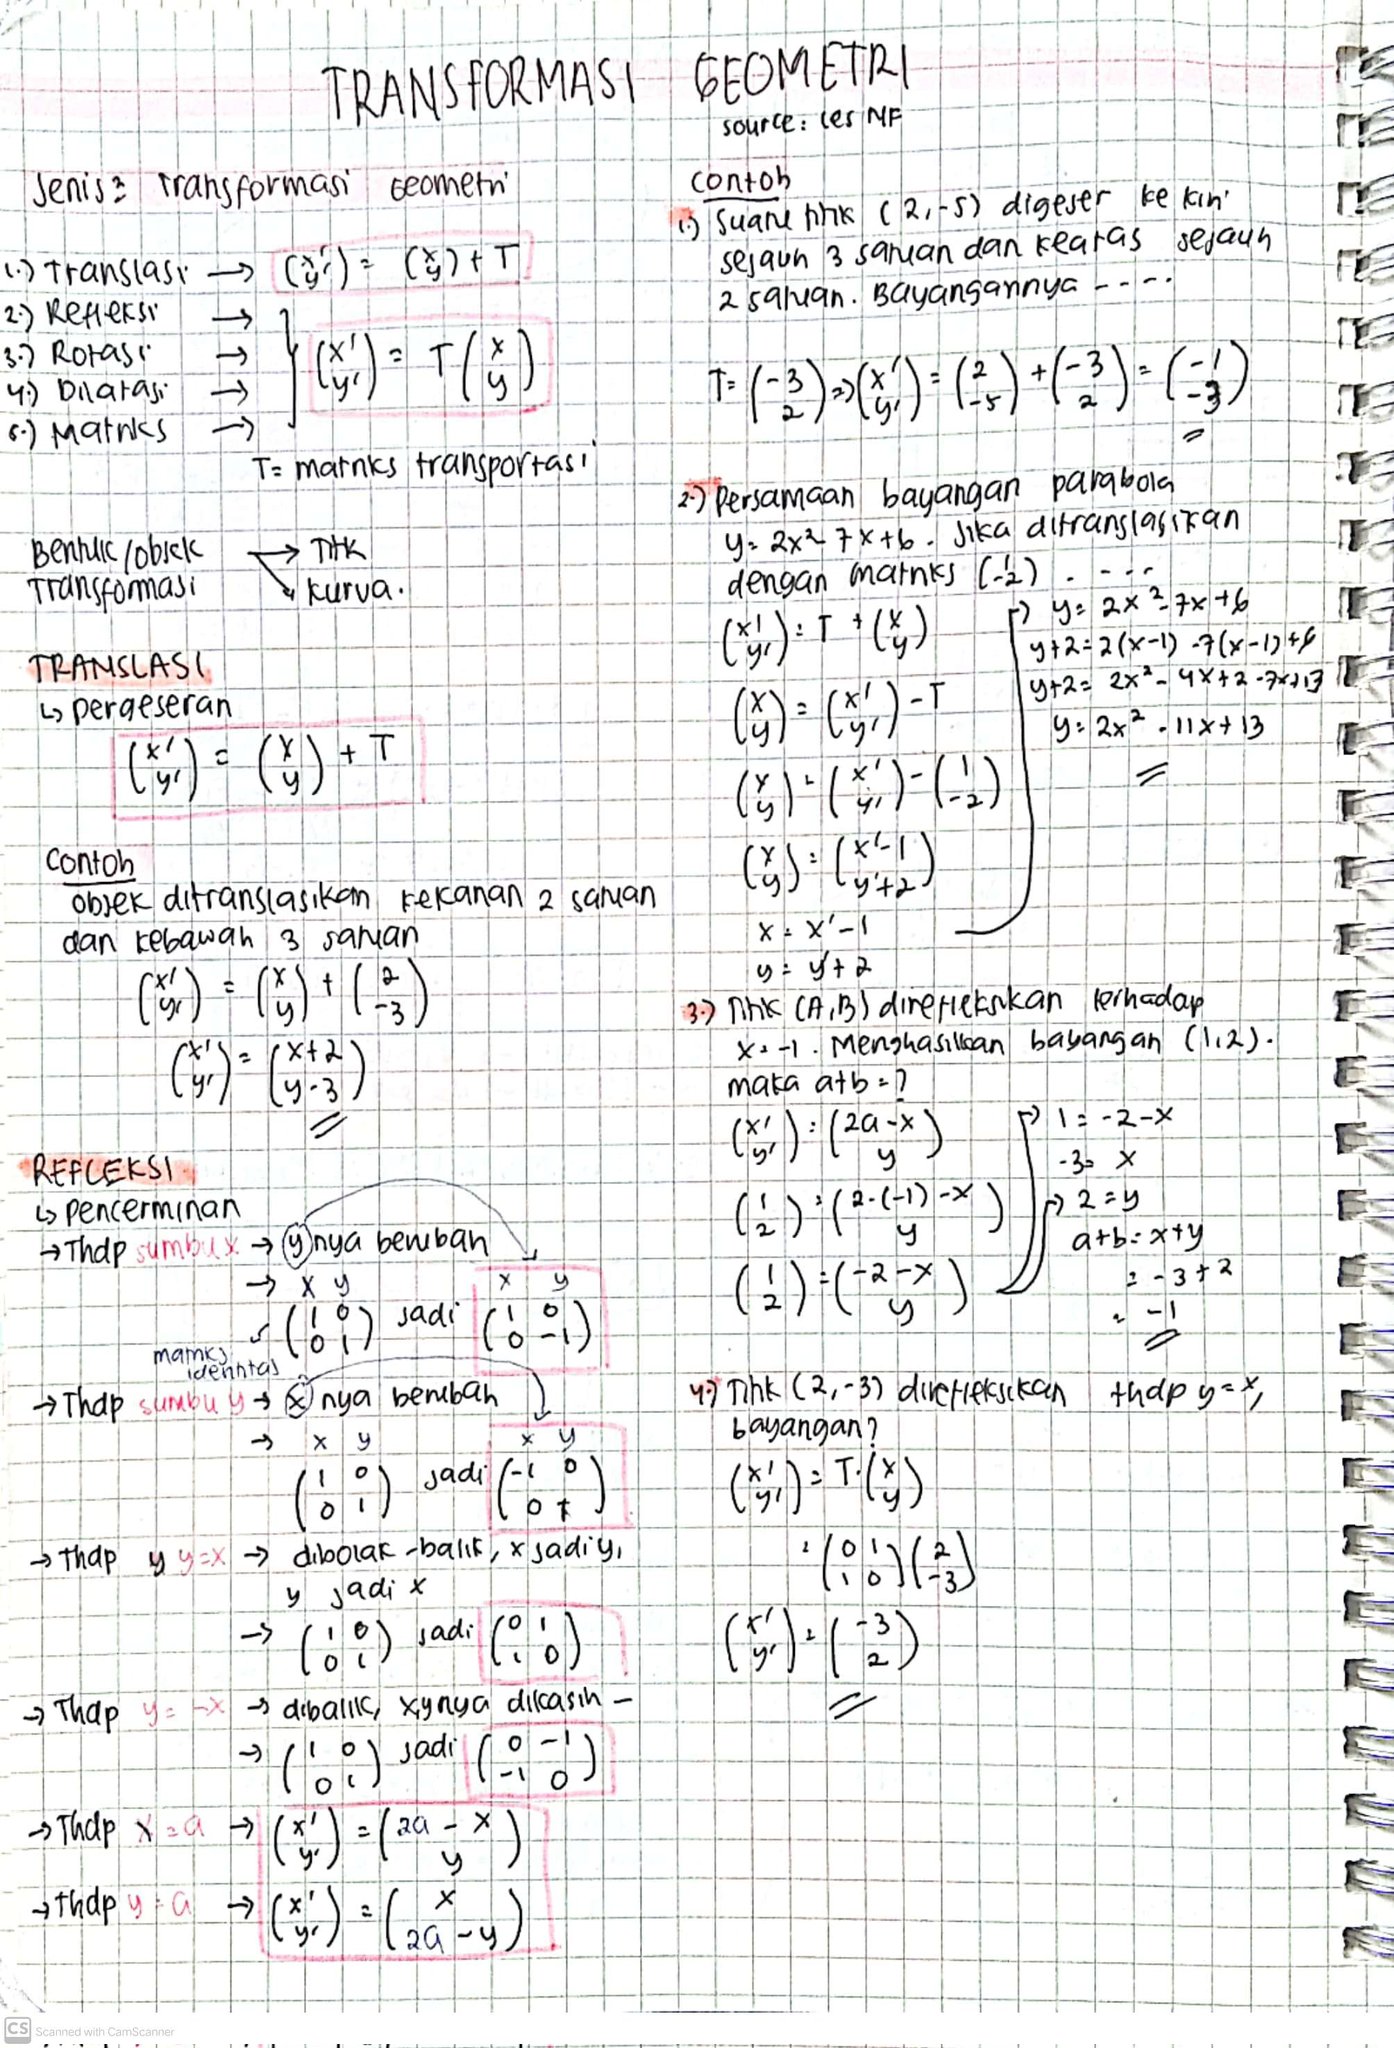 TRANSFORMASI GEOMETRI
source: les NF
Jenis2 Transformasi Geometri
1.) Translasi → (x' y') = (x y) + T
2.) Refleksi →
3.) Rotasi →
4.) Dilatasi →
5.) Matriks →
(x' y') = T (x y)
T= matriks transportasi
Bentuk/objek → Titik
Transformasi → kurva.
TRANSLASI
↳ pergeseran
(x' y') = (x y) + T
Contoh
objek ditranslasikan kekanan 2 satuan
dan kebawah 3 satuan
(x' y') = (x y) + (2 -3)
(x' y') = (x+2 y-3)
REFLEKSI
↳ pencerminan
→ Thdp sumbu x → y nya berubah
→ x y x y
(1 0 0 1) jadi (1 0 0 -1)
matriks
identitas
→ Thdp sumbu y → x nya berubah
→ x y x y
(1 0 0 1) jadi (-1 0 0 1)
→ Thdp y y=x → dibolak-balik, x jadi y,
y jadi x
→ (1 0 0 1) jadi (0 1 1 0)
→ Thdp y = -x → dibalik, x,y nya dikasih -
→ (1 0 0 1) jadi (0 -1 -1 0)
→ Thdp x = a → (x' y') = (2a - x y)
→ Thdp y = a → (x' y') = (x 2a - y)
Contoh
1.) Suatu titik (2,-5) digeser ke kiri
sejauh 3 satuan dan keatas sejauh
2 satuan. Bayangannya ----
T= (-3 2) => (x' y') = (2 -5) + (-3 2) = (-1 -3)
2.) Persamaan bayangan parabola
y= 2x² - 7x+6. Jika ditranslasikan
dengan matriks (1 -2) ....
(x' y') = T + (x y)
(x y) = (x' y') - T
(x y) = (x' y') - (1 -2)
(x y) = (x'-1 y'+2)
x = x'-1
y = y'+2
→ y= 2x² - 7x+6
y+2=2(x-1) -7(x-1)+6
y+2= 2x² - 4x+2 -7x+13
y= 2x² - 11x+13
3.) Titik (A,B) direfleksikan terhadap
x=-1. Menghasilkan bayangan (1,2).
maka a+b=?
(x' y') = (2a-x y)
(1 2) = (2.(-1)-x y)
(1 2) = (-2-x y)
→ 1 = -2-x
-3= x
→ 2=y
a+b= x+y
= -3+2
= -1
4.) Titik (2,-3) direfleksikan thdp y=x,
bayangan?
(x' y') = T.(x y)
= (0 1 1 0)(2 -3)
(x' y') = (-3 2)
CS Scanned with CamScanner